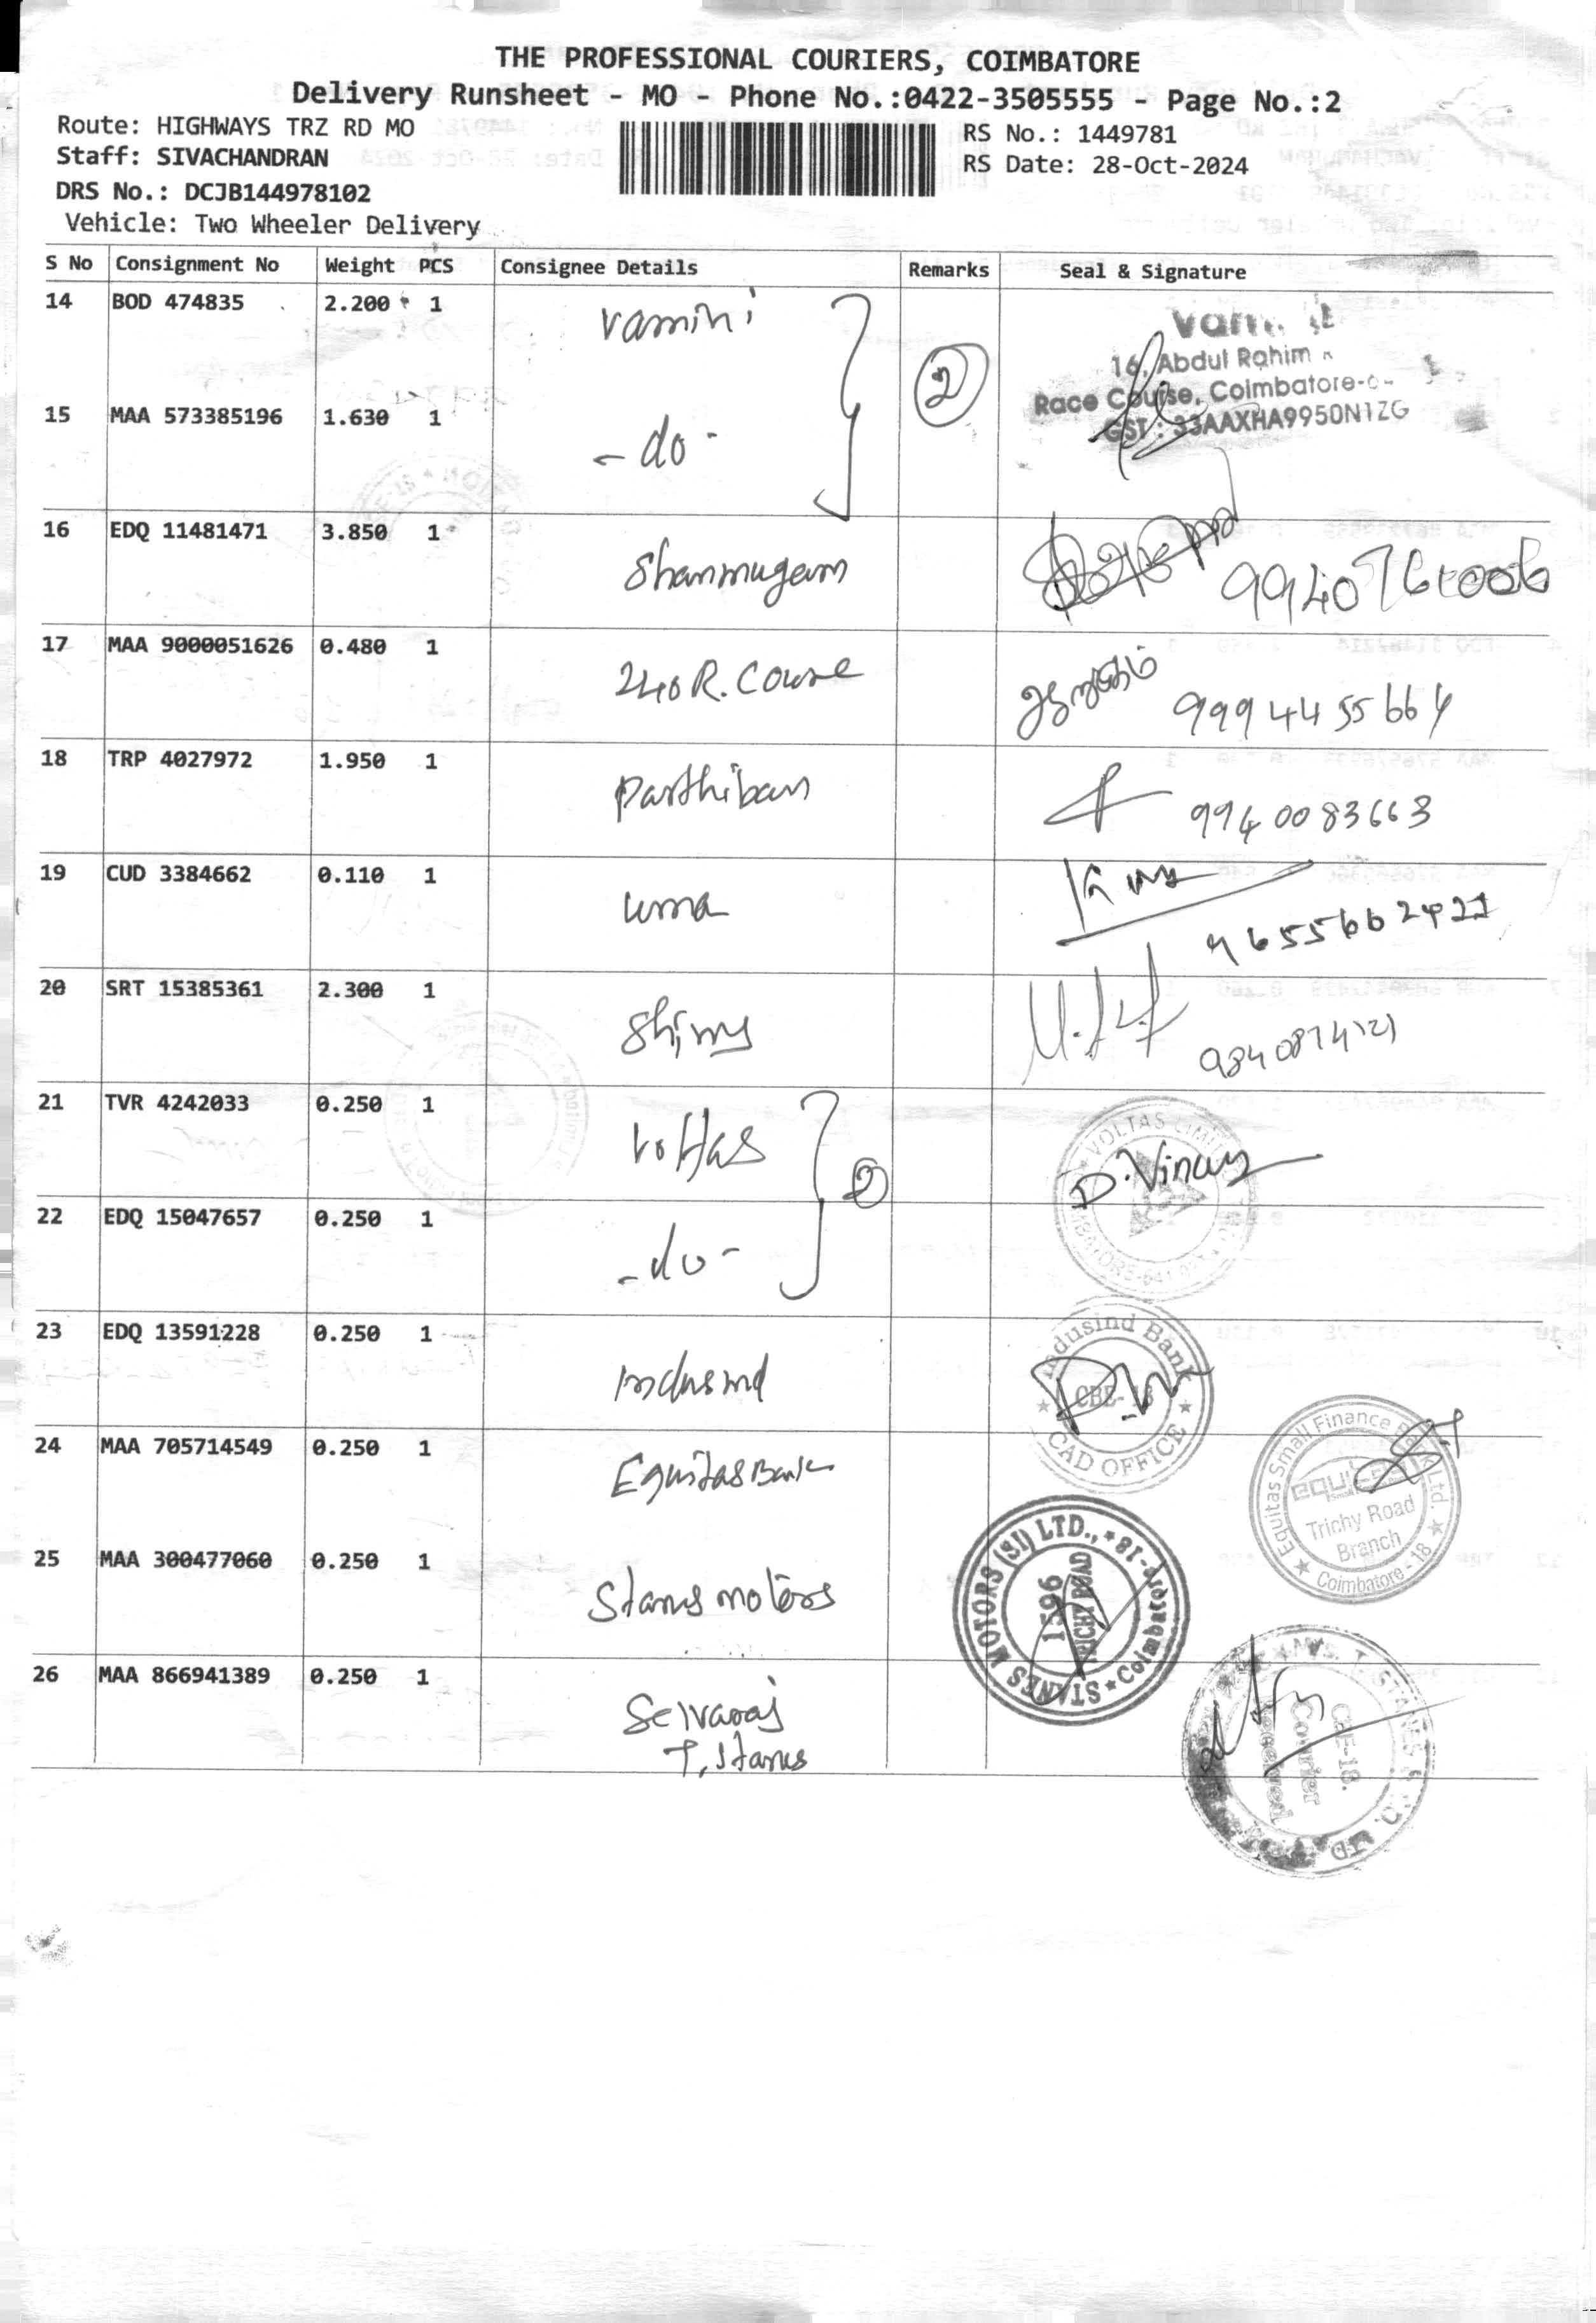 THE PROFESSIONAL COURIERS, COIMBATORE
Delivery Runsheet - MO - Phone No.:0422-3505555 - Page No.:2
Route: HIGHWAYS TRZ RD MO
Staff: SIVACHANDRAN
DRS No.: DCJB144978102
Vehicle: Two Wheeler Delivery
RS No.: 1449781
RS Date: 28-Oct-2024
S No Consignment No Weight PCS Consignee Details Remarks Seal & Signature
14 BOD 474835 2.200 1 Vamini
2
16, Abdul Rahim
Race Course, Coimbatore
GST : 33AAXHA9950N1ZG
15 MAA 573385196 1.630 1 - do -
16 EDQ 11481471 3.850 1 Shanmugam
17 MAA 9000051626 0.480 1 240 R. Course 9994455664
18 TRP 4027972 1.950 1 Parthiban 9940083663
19 CUD 3384662 0.110 1 uma
20 SRT 15385361 2.300 1
21 TVR 4242033 0.250 1 Voltas 2 D. Vinay
VOLTAS LIMITED
22 EDQ 15047657 0.250 1 - do -
23 EDQ 13591228 0.250 1 Indusind
Indusind Bank
CBE-18
CAD OFFICE
24 MAA 705714549 0.250 1 Equitas Bank
Equitas Small Finance Bank Ltd.
equitas
Trichy Road
Branch
Coimbatore - 18
25 MAA 300477060 0.250 1 Stanes motors
STANES MOTORS (SI) LTD.,
1596
TRICHY ROAD
Coimbatore-18
26 MAA 866941389 0.250 1 Selvaraj
T. Stanes
M/s. T. STANES & CO. LTD
CBE-18.
Courier
Received